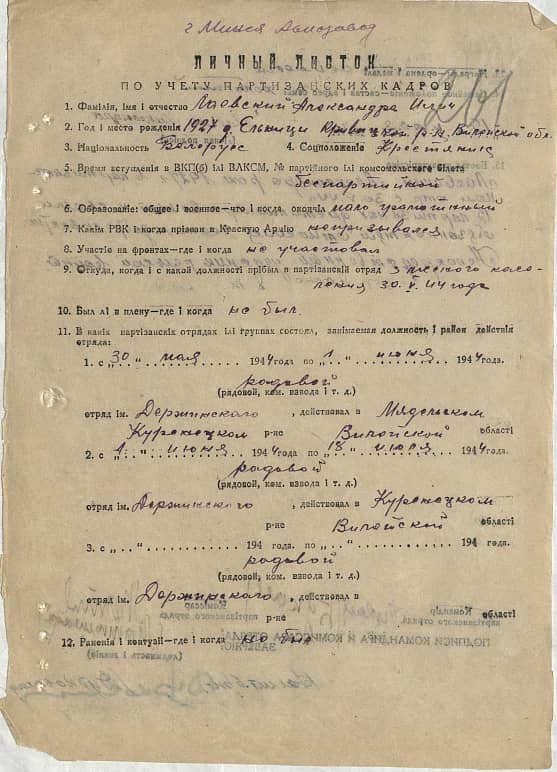 г Минск Автозавод
ЛИЧНЫЙ ЛИСТОК
ПО УЧЕТУ ПАРТИЗАНСКИХ КАДРОВ
1. Фамілія, імя і отчество Лаевский Александра Илич
2. Год і место рождения 1927 д. Ельница Кривицкой р-н. Вилейской обл.
3. Національность Белорус 4. Соцположеніе Крестянин
5. Время вступления в ВКП(б) ілі ВЛКСМ, № партійного ілі комсомольского білета
беспартийной
6. Образованіе: общее і военное—что і когда окончіл мало грамотный
7. Какім РВК і когда прізван в Красную Армію непризывался
8. Участіе на фронтах—где і когда не участвовал
9. Откуда, когда і с какой должності прібыл в партізанскій отряд з месного насе-
ления 30. V. 44 года
10. Был лі в плену—где і когда не был.
11. В какіх партізанскіх отрядах ілі группах состоял, занімаемая должность і район действія
отряда:
1. с „30„ мая 1944 года по „1„ июня 1944 года
радовой
(рядовой, ком. взвода і т. д.)
отряд ім. Держинского, действовал в Мядельском
Куренецком р-не Вилейской області
2. с „1„ июня 1944 года по „18„ июля 1944 года.
радовой
(рядовой, ком. взвода і т. д.)
отряд ім. Держинского, действовал в Куренецком
р-не Вилейской області
3. с „..„ 194 года. по „..„ 194 года.
радовой
(рядовой, ком. взвода і т. д.)
отряд ім. Держинского, действовал в
р-не області
12. Раненія і контузіі—где і когда не был